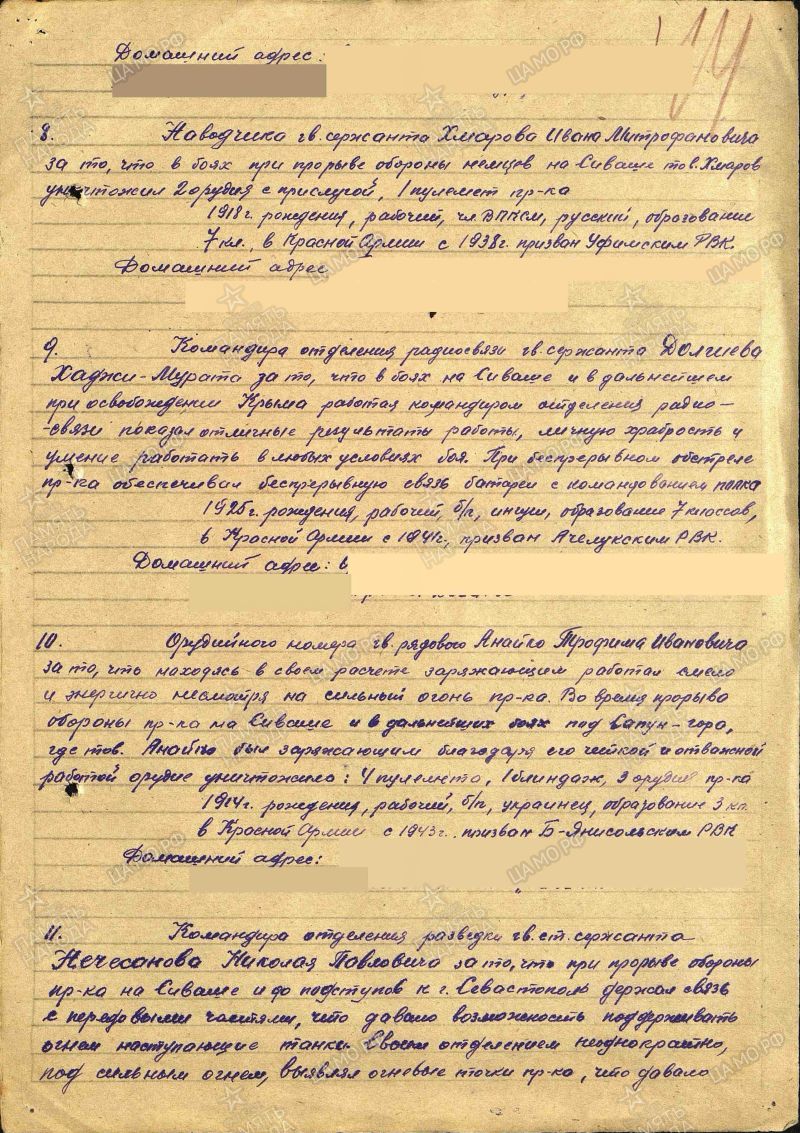 Домашний адрес:
8. Наводчика гв. сержанта Хмарова Ивана Митрофановича
за то, что в боях при прорыве обороны немцев на Сиваше тов. Хмаров
уничтожил 2 орудия с прислугой, 1 пулемет пр-ка
1918 г. рождения, рабочий, чл ВЛКСМ, русский, образование
7 кл., в Красной Армии с 1938 г. призван Уфимским РВК.
Домашний адрес
9. Командира отделения радиосвязи гв. сержанта Долгиева
Хаджи-Мурата за то, что в боях на Сиваше и в дальнейшем
при освобождении Крыма работая командиром отделения радио-
-связи показал отличные результаты работы, личную храбрость и
умение работать в любых условиях боя. При беспрерывном обстреле
пр-ка обеспечивал беспрерывную связь батареи с командованием полка
1925 г. рождения, рабочий, б/п, ингуш, образование 7 классов,
в Красной Армии с 1941 г., призван Ачелукским РВК.
Домашний адрес: в
10. Орудийного номера гв. рядового Анайко Трофима Ивановича
за то, что находясь в своем расчете заряжающим работал смело
и энергично несмотря на сильный огонь пр-ка. Во время прорыва
обороны пр-ка на Сиваше и в дальнейших боях под Сапун-гора,
где тов. Анайко был заряжающим благодаря его четкой и отважной
работой орудие уничтожило: 4 пулемета, 1 блиндаж, 3 орудия пр-ка
1914 г. рождения, рабочий, б/п, украинец, образование 3 кл.
в Красной Армии с 1943 г., призван Б-Янисольским РВК
Домашний адрес:
11. Командира отделения разведки гв. ст. сержанта
Нечесанова Николая Павловича за то, что при прорыве обороны
пр-ка на Сиваше и до подступов к г. Севастополь держал связь
с передовыми частями, что давало возможность поддерживать
огнем наступающие танки. Своим отделением неоднократно,
под сильным огнем, выявлял огневые точки пр-ка, что давало